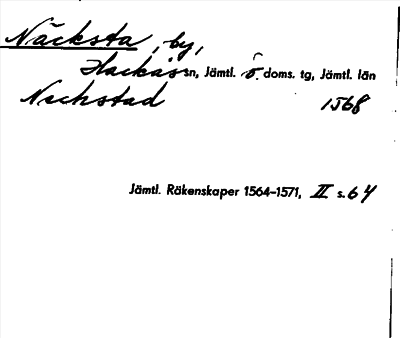 Näcksta, by,
Hackås sn, Jämtl. ö. doms. tg, Jämtl. län
Neckstad 1568
Jämtl. Räkenskaper 1564–1571, II s. 64